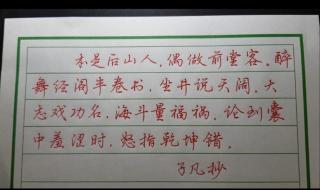 本是后山人，偶做前堂客。醉
舞经阁半卷书，坐井说天阔。大
志戏功名，海斗量福祸。论到囊
中羞涩时，怒指乾坤错。
了凡抄